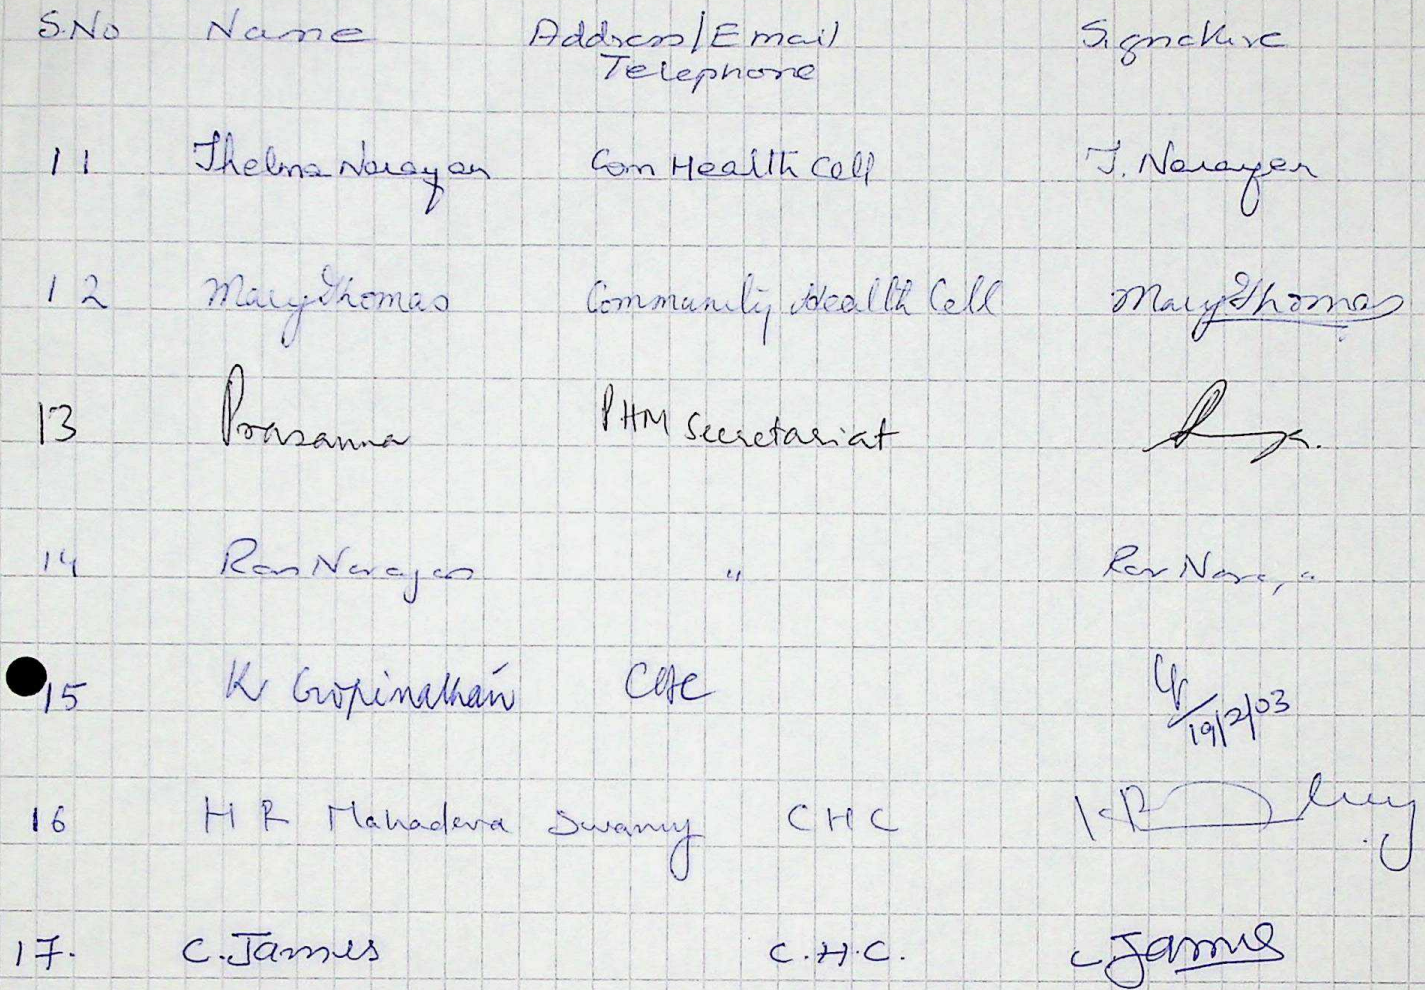 S.No Name Address/Email Signature
Telephone
11 Thelma Narayan Com Health Cell T. Narayan
12 Mary Thomas Community Health Cell Mary Thomas
13 Prasanna PHM Secretariat
14 Ravi Narayan " Ravi Narayan
15 K Gopinathan CHC
19/2/03
16 H R Mahadeva Swamy CHC
17. C. James C.H.C. C James